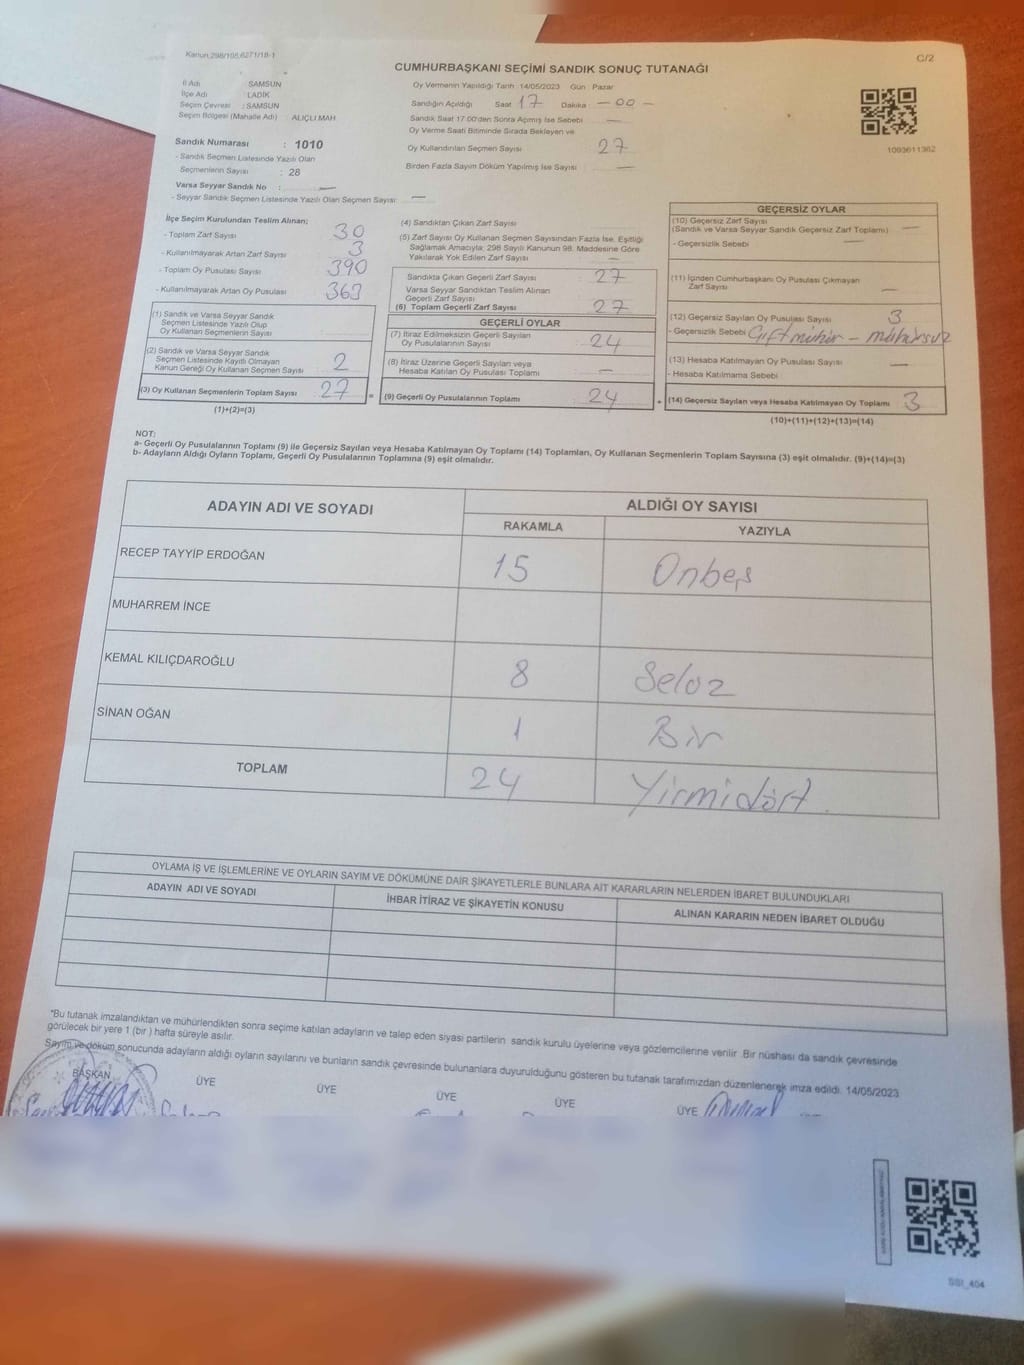 Kanun,298/105,6271/18-1
C/2
CUMHURBAŞKANI SEÇİMİ SANDIK SONUÇ TUTANAĞI
İl Adı : SAMSUN
İlçe Adı : LADİK
Seçim Çevresi : SAMSUN
Seçim Bölgesi (Mahalle Adı) : ALIÇLI MAH
Sandık Numarası : 1010
- Sandık Seçmen Listesinde Yazılı Olan
Seçmenlerin Sayısı : 28
Varsa Seyyar Sandık No : —
- Seyyar Sandık Seçmen Listesinde Yazılı Olan Seçmen Sayısı : —
Oy Vermenin Yapıldığı Tarih 14/05/2023 Gün : Pazar
Sandığın Açıldığı Saat 17 Dakika — 00 —
Sandık Saat 17.00'den Sonra Açımış İse Sebebi —
Oy Verme Saati Bitiminde Sırada Bekleyen ve
Oy Kullandırılan Seçmen Sayısı 27
Birden Fazla Sayım Döküm Yapılmış İse Sayısı —
1003611362
İlçe Seçim Kurulundan Teslim Alınan:
- Toplam Zarf Sayısı 30
- Kullanılmayarak Artan Zarf Sayısı 3
- Toplam Oy Pusulası Sayısı 390
- Kullanılmayarak Artan Oy Pusulası 363
(1) Sandık ve Varsa Seyyar Sandık
Seçmen Listesinde Yazılı Olup
Oy Kullanan Seçmenlerin Sayısı
(2) Sandık ve Varsa Seyyar Sandık
Seçmen Listesinde Kayıtlı Olmayan
Kanun Gereği Oy Kullanan Seçmen Sayısı 2
(3) Oy Kullanan Seçmenlerin Toplam Sayısı 27 =
(1)+(2)=(3)
(4) Sandıktan Çıkan Zarf Sayısı
(5) Zarf Sayısı Oy Kullanan Seçmen Sayısından Fazla İse, Eşitliği
Sağlamak Amacıyla; 298 Sayılı Kanunun 98. Maddesine Göre
Yakılarak Yok Edilen Zarf Sayısı —
Sandıkta Çıkan Geçerli Zarf Sayısı 27
Varsa Seyyar Sandıktan Teslim Alınan
Geçerli Zarf Sayısı
(6) Toplam Geçerli Zarf Sayısı 27
GEÇERLİ OYLAR
(7) İtiraz Edilmeksizin Geçerli Sayılan
Oy Pusulalarının Sayısı 24
(8) İtiraz Üzerine Geçerli Sayılan veya
Hesaba Katılan Oy Pusulası Toplamı —
(9) Geçerli Oy Pusulalarının Toplamı 24 +
GEÇERSİZ OYLAR
(10) Geçersiz Zarf Sayısı
(Sandık ve Varsa Seyyar Sandık Geçersiz Zarf Toplamı) —
- Geçersizlik Sebebi —
(11) İçinden Cumhurbaşkanı Oy Pusulası Çıkmayan
Zarf Sayısı —
(12) Geçersiz Sayılan Oy Pusulası Sayısı 3
- Geçersizlik Sebebi Çift mühür – mühürsüz
(13) Hesaba Katılmayan Oy Pusulası Sayısı —
- Hesaba Katılmama Sebebi
(14) Geçersiz Sayılan veya Hesaba Katılmayan Oy Toplamı 3
(10)+(11)+(12)+(13)=(14)
NOT:
a- Geçerli Oy Pusulalarının Toplamı (9) ile Geçersiz Sayılan veya Hesaba Katılmayan Oy Toplamı (14) Toplamları, Oy Kullanan Seçmenlerin Toplam Sayısına (3) eşit olmalıdır. (9)+(14)=(3)
b- Adayların Aldığı Oyların Toplamı, Geçerli Oy Pusulalarının Toplamına (9) eşit olmalıdır.
ADAYIN ADI VE SOYADI ALDIĞI OY SAYISI
RAKAMLA YAZIYLA
RECEP TAYYİP ERDOĞAN 15 Onbeş
MUHARREM İNCE
KEMAL KILIÇDAROĞLU 8 Sekiz
SİNAN OĞAN 1 Bir
TOPLAM 24 Yirmidört
OYLAMA İŞ VE İŞLEMLERİNE VE OYLARIN SAYIM VE DÖKÜMÜNE DAİR ŞİKAYETLERLE BUNLARA AİT KARARLARIN NELERDEN İBARET BULUNDUKLARI
ADAYIN ADI VE SOYADI İHBAR İTİRAZ VE ŞİKAYETİN KONUSU ALINAN KARARIN NEDEN İBARET OLDUĞU
*Bu tutanak imzalandıktan ve mühürlendikten sonra seçime katılan adayların ve talep eden siyasi partilerin sandık kurulu üyelerine veya gözlemcilerine verilir. Bir nüshası da sandık çevresinde
görülecek bir yere 1 (bir ) hafta süreyle asılır.
Sayım ve döküm sonucunda adayların aldığı oyların sayılarını ve bunların sandık çevresinde bulunanlara duyurulduğunu gösteren bu tutanak tarafımızdan düzenlenerek imza edildi. 14/05/2023
BAŞKAN ÜYE ÜYE ÜYE ÜYE ÜYE
SSI_404